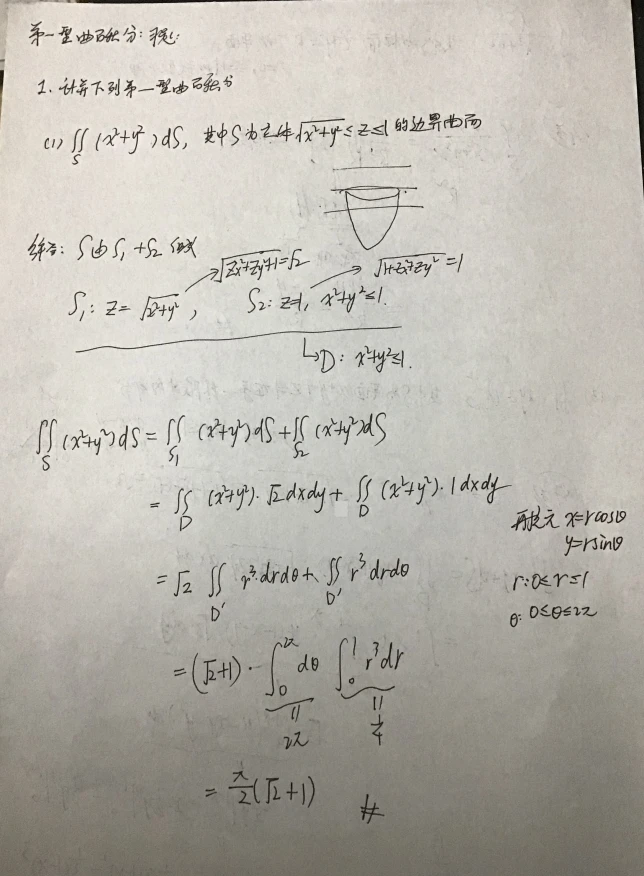 第一型曲面积分:
1. 计算下列第一型曲面积分
(1) ∬_S (x²+y²)dS, 其中S为立体√(x²+y²)≤z≤1的边界曲面
解: S由S₁+S₂组成
√(Zx²+Zy²+1)=√2 √(1+Zx²+Zy²)=1
S₁: z=√(x²+y²), S₂: z=1, x²+y²≤1.
↳D: x²+y²≤1.
∬_S (x²+y²)dS = ∬_{S₁} (x²+y²)dS + ∬_{S₂} (x²+y²)dS
= ∬_D (x²+y²)·√2dxdy + ∬_D (x²+y²)·1dxdy
再换元 x=rcosθ
y=rsinθ
= √2 ∬_{D'} r³drdθ + ∬_{D'} r³drdθ
r: 0≤r≤1
θ: 0≤θ≤2π
= (√2+1)·∫₀^{2π} dθ ∫₀¹ r³dr
‖ ‖
2π 1/4
= π/2(√2+1) #